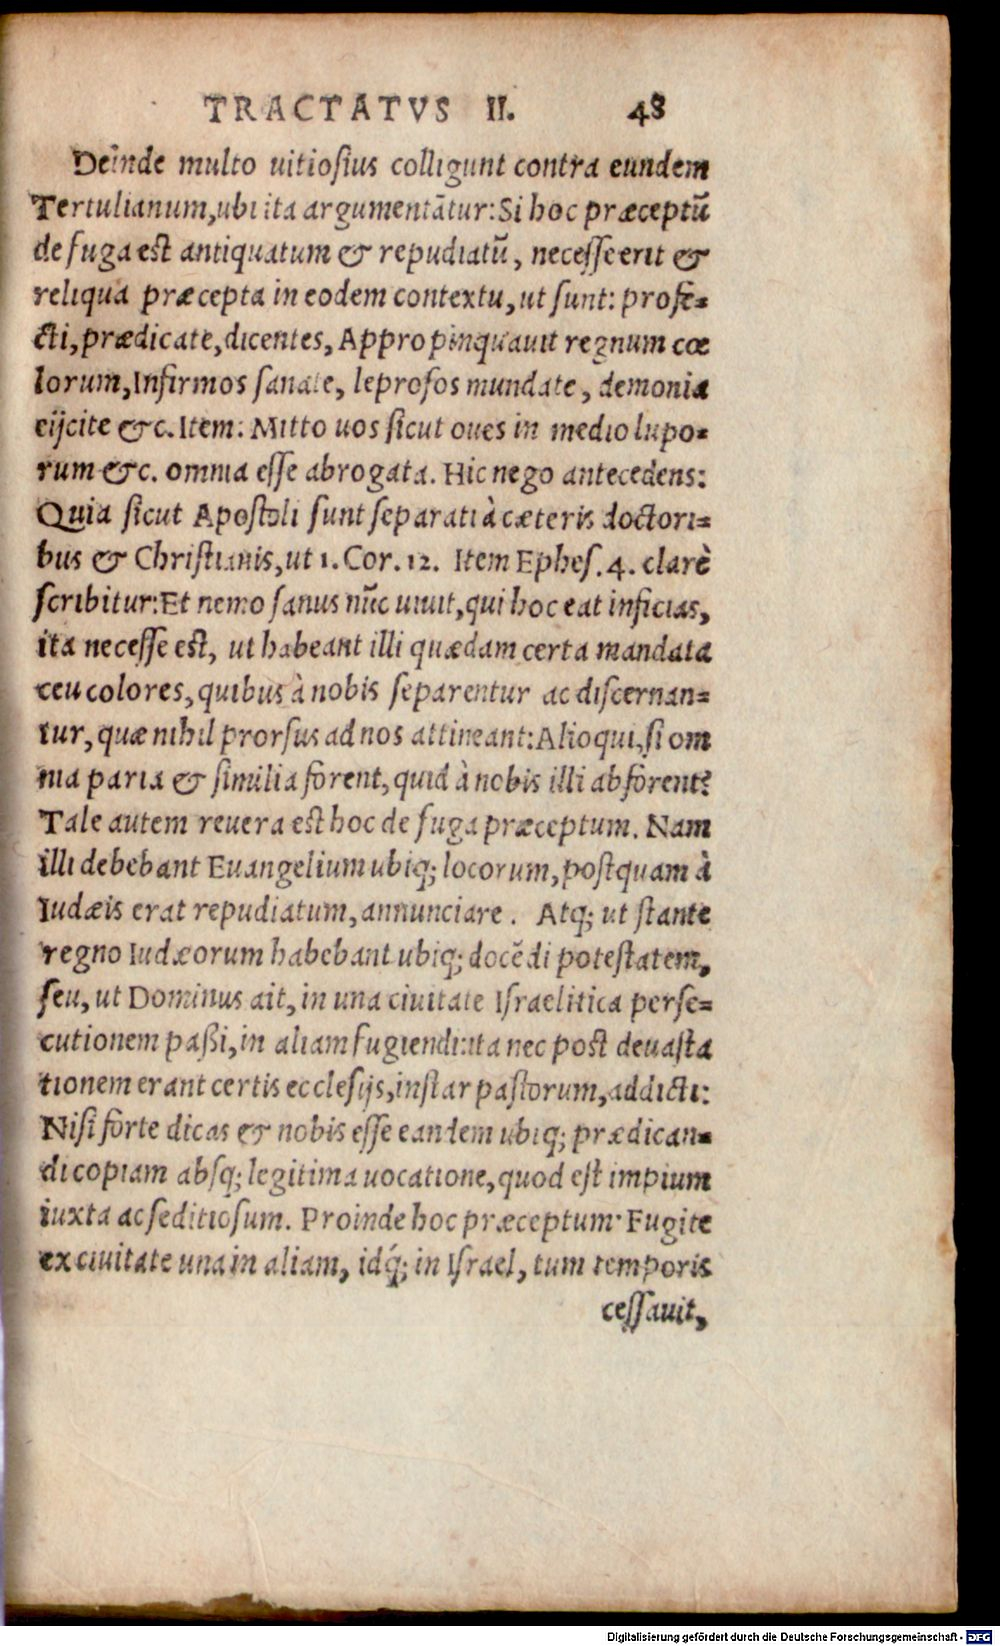 TRACTATVS II. 48
Deinde multo uitiosius colligunt contra eundem
Tertulianum,ubi ita argumentātur:Si hoc præceptū
de fuga est antiquatum & repudiatū, necesse erit &
reliqua præcepta in eodem contextu, ut sunt: profe-
cti, prædicate, dicentes, Appropinquauit regnum cœ
lorum, Infirmos sanate, leprosos mundate, demonia
eijcite &c. Item: Mitto uos sicut oues in medio lupo-
rum &c. omnia esse abrogata. Hic nego antecedens:
Quia sicut Apostoli sunt separati à cæteris doctori-
bus & Christianis, ut 1. Cor. 12. Item Ephes. 4. clarè
scribitur: Et nemo sanus nūc uiuit, qui hoc eat inficias,
ita necesse est, ut habeant illi quædam certa mandata
ceu colores, quibus à nobis separentur ac discernan-
tur, quæ nihil prorsus ad nos attineant: Alioqui, si om
nia paria & similia forent, quid à nobis illi abforent?
Tale autem reuera est hoc de fuga præceptum. Nam
illi debebant Euangelium ubiq; locorum, postquam à
Iudæis erat repudiatum, annunciare. Atq; ut stante
regno Iudæorum habebant ubiq; docēdi potestatem,
seu, ut Dominus ait, in una ciuitate Israelitica perse-
cutionem paßi, in aliam fugiendi: ita nec post deuasta
tionem erant certis ecclesijs, instar pastorum, addicti:
Nisi forte dicas & nobis esse eandem ubiq; prædican-
di copiam absq; legitima uocatione, quod est impium
iuxta ac seditiosum. Proinde hoc præceptum: Fugite
ex ciuitate una in aliam, idq́; in Israel, tum temporis
cessauit,
Digitalisierung gefördert durch die Deutsche Forschungsgemeinschaft - DFG